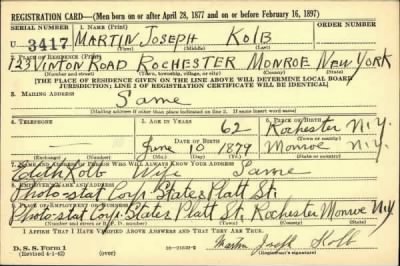 REGISTRATION CARD—(Men born on or after April 28, 1877 and on or before February 16, 1897)
SERIAL NUMBER 1. NAME (Print) ORDER NUMBER
U 3417 MARTIN JOSEPH KOLB
(First) (Middle) (Last)
2. PLACE OF RESIDENCE (Print)
123 VINTON ROAD ROCHESTER MONROE NEW YORK
(Number and street) (Town, township, village, or city) (County) (State)
[THE PLACE OF RESIDENCE GIVEN ON THE LINE ABOVE WILL DETERMINE LOCAL BOARD
JURISDICTION; LINE 2 OF REGISTRATION CERTIFICATE WILL BE IDENTICAL]
3. MAILING ADDRESS
Same
[Mailing address if other than place indicated on line 2. If same insert word same]
4. TELEPHONE 5. AGE IN YEARS 6. PLACE OF BIRTH
62 Rochester N.Y.
DATE OF BIRTH (Town or county)
June 10 1879 Monroe N.Y.
(Exchange) (Number) (Mo.) (Day) (Yr.) (State or country)
7. NAME AND ADDRESS OF PERSON WHO WILL ALWAYS KNOW YOUR ADDRESS
Edith Kolb Wife Same
8. EMPLOYER'S NAME AND ADDRESS
Photo-stat Corp. State & Platt St.
9. PLACE OF EMPLOYMENT OR BUSINESS
Photo-stat Corp. State & Platt St. Rochester Monroe N.Y
(Number and street or R. F. D. number) (Town) (County) (State)
I AFFIRM THAT I HAVE VERIFIED ABOVE ANSWERS AND THAT THEY ARE TRUE.
D. S. S. Form 1
(Revised 4-1-42) (over) Martin Joseph Kolb
(Registrant's signature)